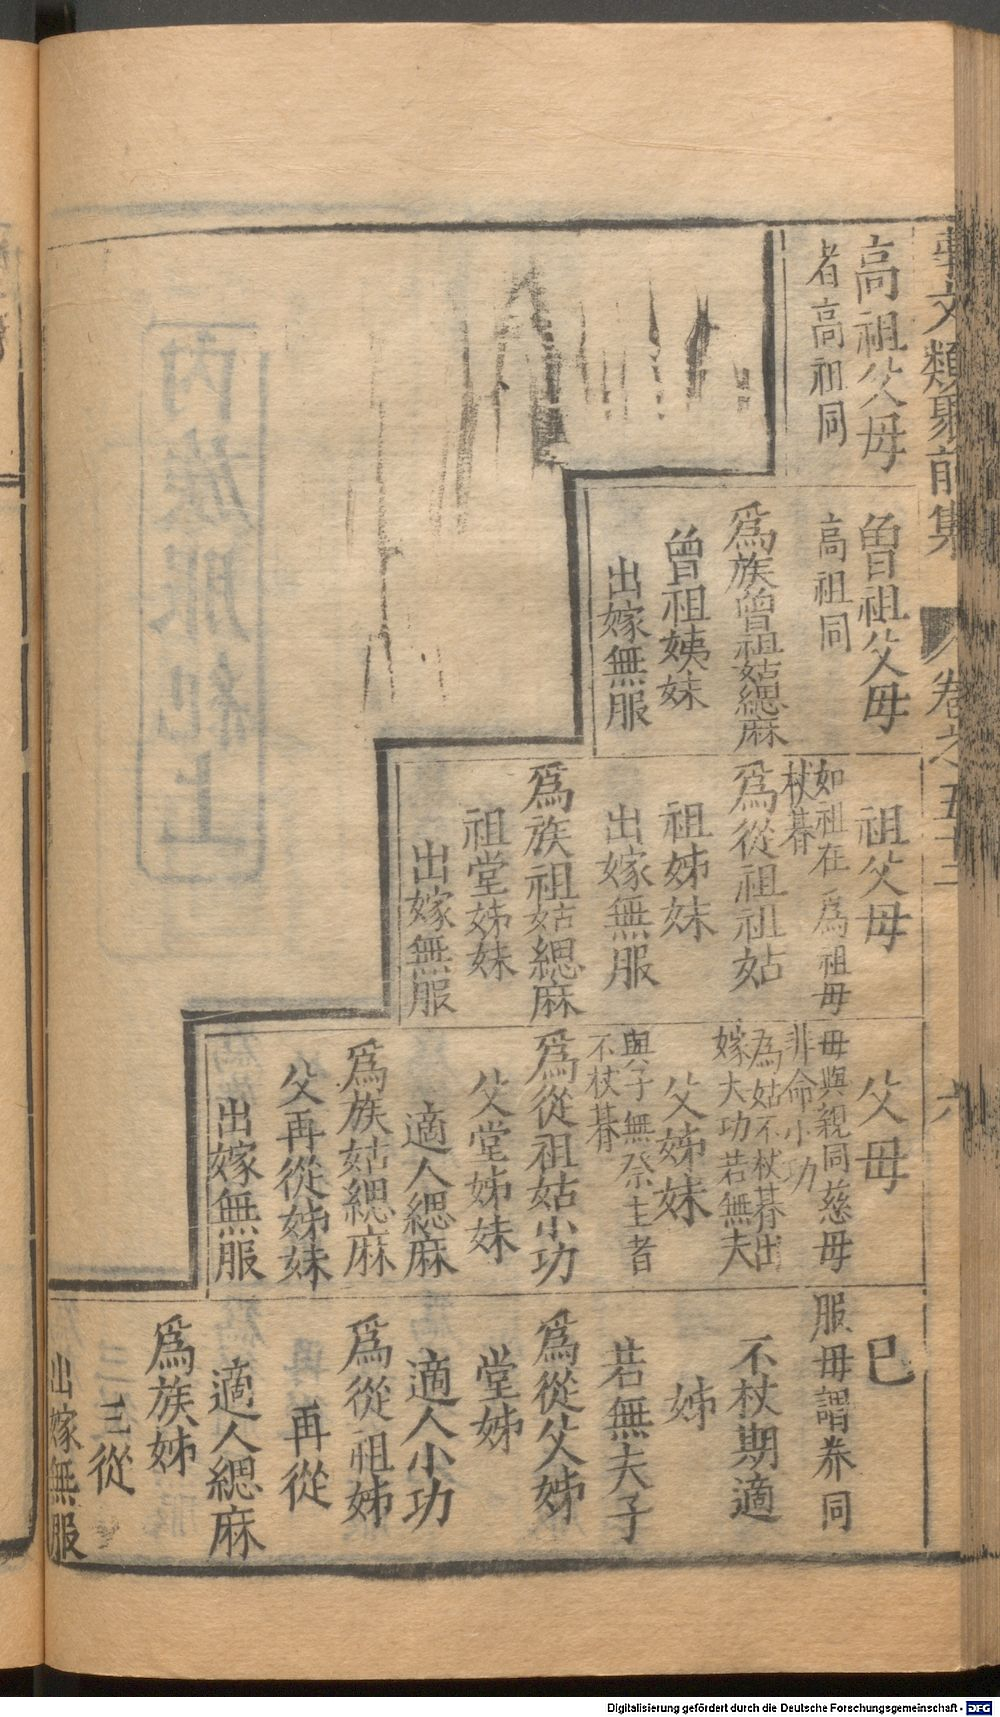 事文類聚前集
卷之五十三
六
高祖父母
者高祖同
曾祖父母
高祖同
為族曾祖姑緦麻
曾祖姨妹
出嫁無服
祖父母
如祖在為祖母
杖朞
為從祖祖姑
祖姊妹
出嫁無服
為族祖姑緦麻
祖堂姊妹
出嫁無服
父母
母與親同慈母
非命小功
為姑不杖朞出
嫁大功若無夫
父姊妹
與子無祭主者
不杖朞
為從祖姑小功
父堂姊妹
適人緦麻
為族姑緦麻
父再從姊妹
出嫁無服
己
服母謂養同
不杖期適
姊
若無夫子
為從父姊
堂姊
適人小功
為從祖姊
再從
適人緦麻
為族姊
三從
出嫁無服
內族服紀上
Digitalisierung gefördert durch die Deutsche Forschungsgemeinschaft - DFG